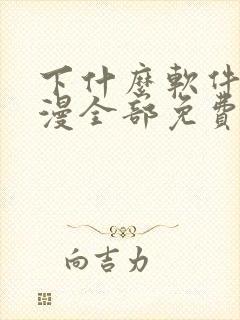 下什麼軟件
漫全部免費
向吉力